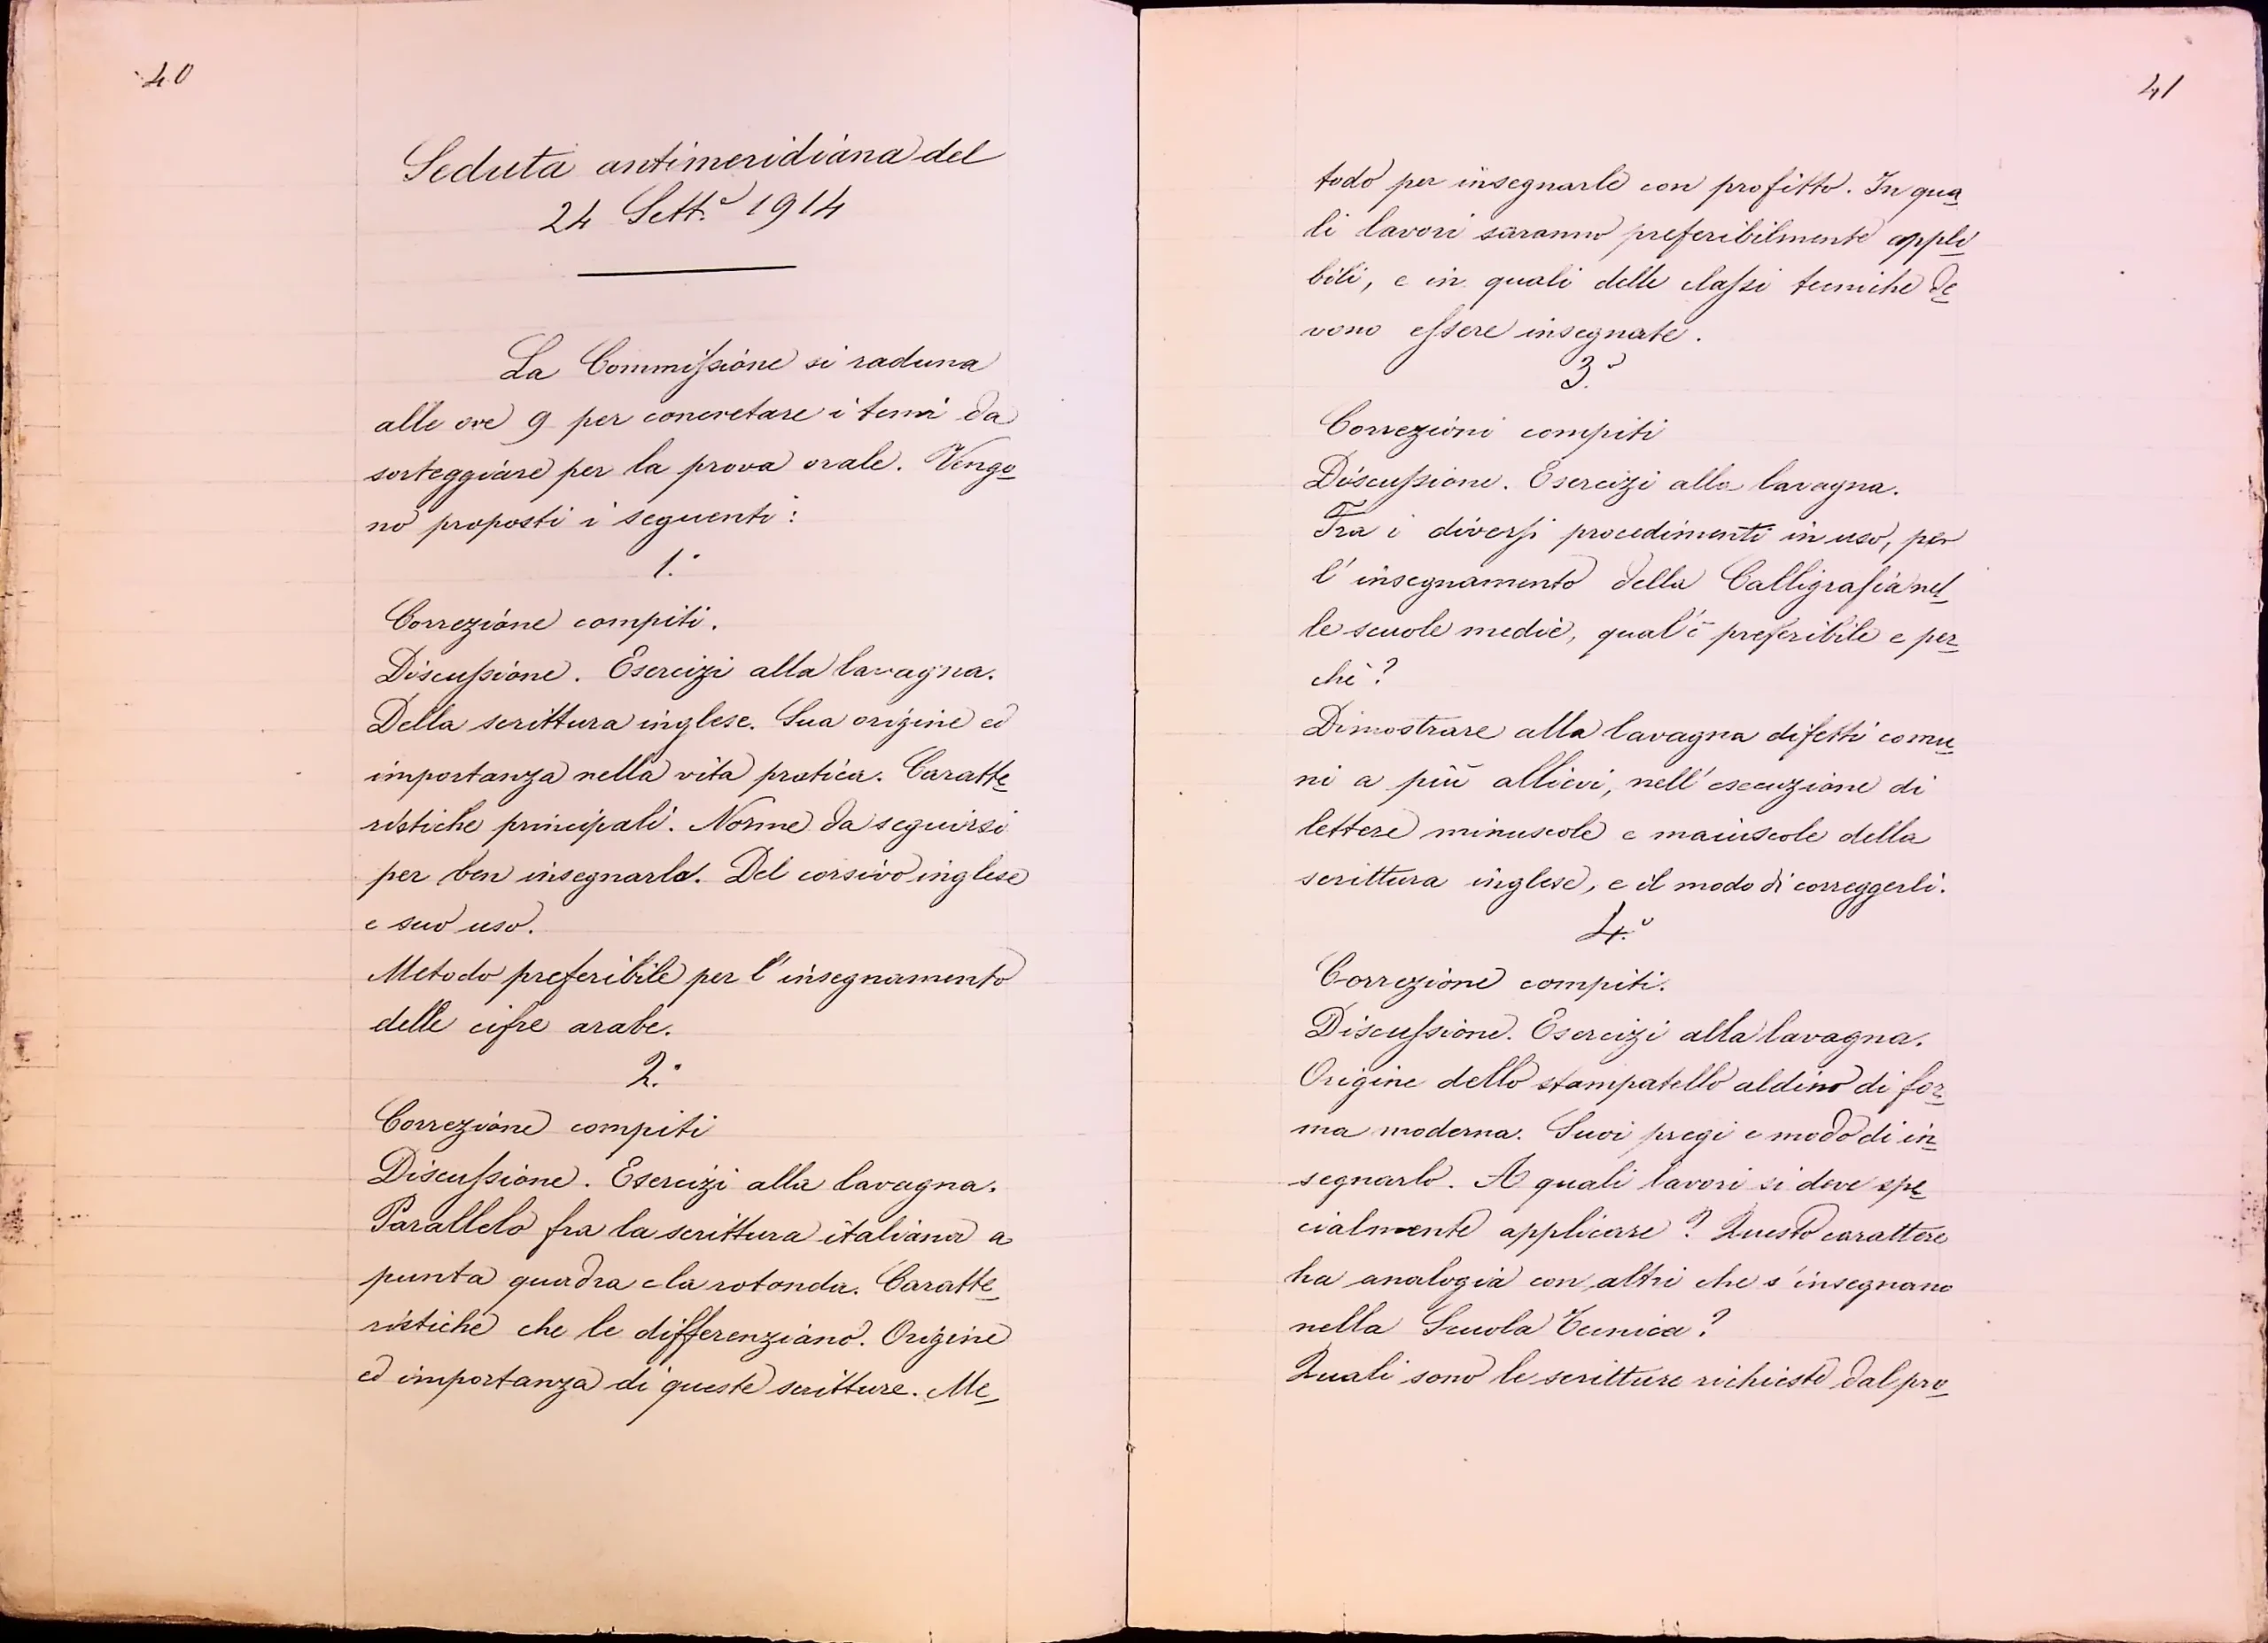 40
Seduta antimeridiana del
24 Sett.e 1914
La Commissione si raduna
alle ore 9 per concretare i temi da
sorteggiare per la prova orale. Vengo_
no proposti i seguenti:
1.°
Correzione compiti.
Discussione. Esercizi alla lavagna.
Della scrittura inglese. Sua origine ed
importanza nella vita pratica. Caratte_
ristiche principali. Norme da seguirsi
per ben insegnarla. Del corsivo inglese
e suo uso.
Metodo preferibile per l'insegnamento
delle cifre arabe.
2.°
Correzione compiti
Discussione. Esercizi alla lavagna.
Parallelo fra la scrittura italiana a
punta quadra e la rotonda. Caratte_
ristiche che le differenziano. Origine
ed importanza di queste scritture. Me_
41
todo per insegnarle con profitto. In qua_
li lavori saranno preferibilmente appli_
bili, e in quali delle classi tecniche de_
vono essere insegnate.
3.°
Correzioni compiti
Discussione. Esercizi alla lavagna.
Tra i diversi procedimenti in uso, per
l'insegnamento della Calligrafia nel_
le scuole medie, qual'è preferibile e per_
chè?
Dimostrare alla lavagna difetti comu_
ni a più allievi, nell'esecuzione di
lettere minuscole e maiuscole della
scrittura inglese, e il modo di correggerli.
4.°
Correzione compiti.
Discussione. Esercizi alla lavagna.
Origine dello stampatello aldino di for_
ma moderna. Suoi pregi e modo di in_
segnarlo. A quali lavori si deve spe_
cialmente applicare? Questo carattere
ha analogia con altri che s'insegnano
nella Scuola Tecnica?
Quali sono le scritture richieste dal pro_